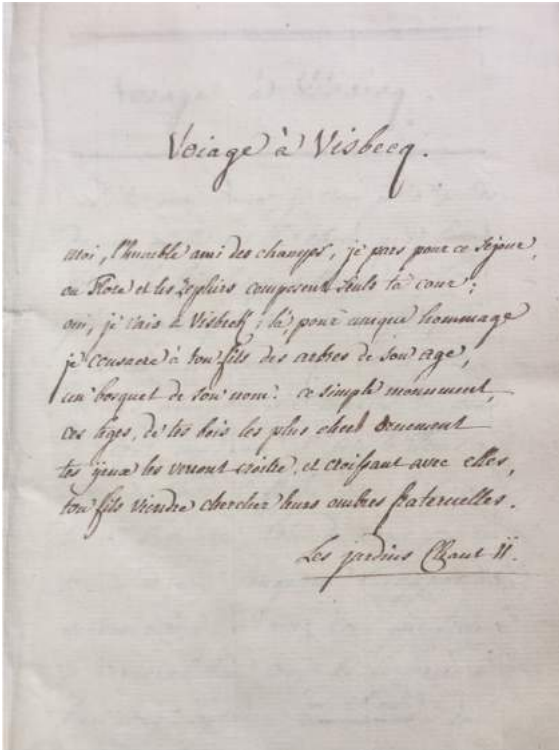 Voiage à Visbecq.
moi, l'humble ami des champs, je pars pour ce séjour,
ou Flore et les Zephirs composent seuls ta cour ;
oui, je vais à Visbecq ; là, pour unique hommage
je consacre à ton fils des arbres de son age,
un bosquet de son nom : ce simple monument,
ces tiges, de tes bois les plus cher ornement
tes yeux les verront croitre, et croissant avec elles,
ton fils viendra chercher leurs ombres fraternelles.
Les jardins Chant II.